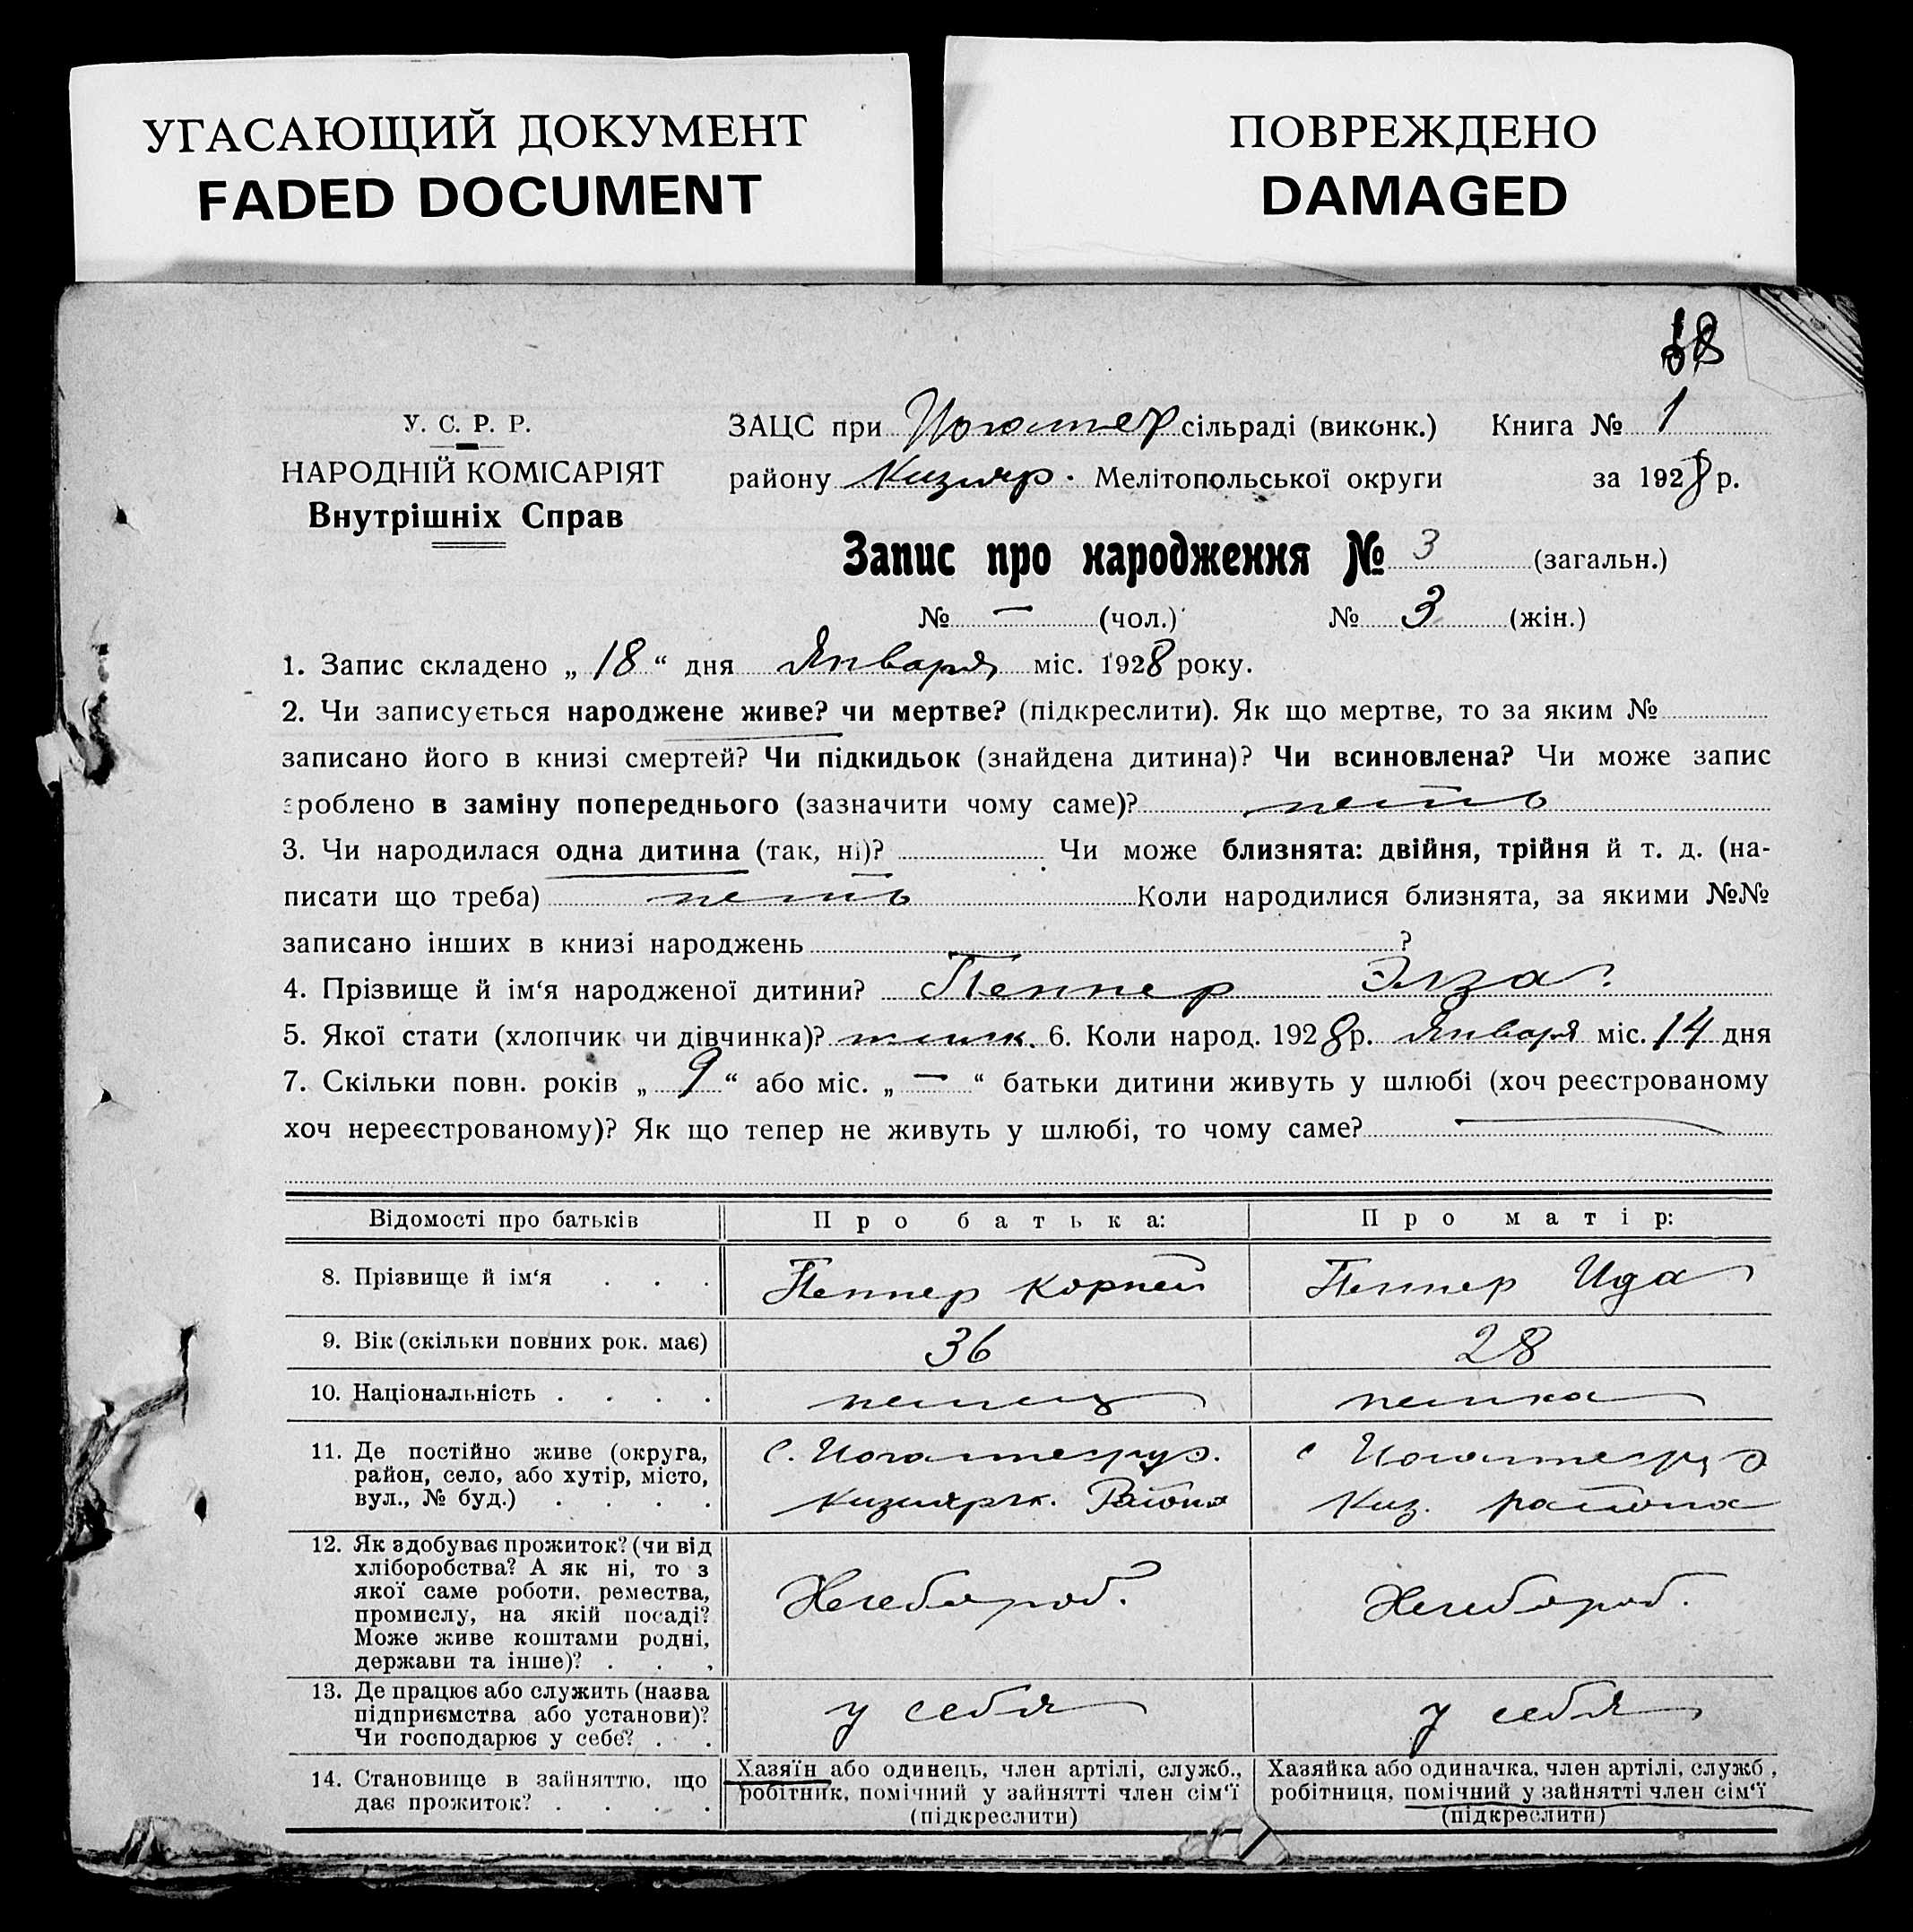 УГАСАЮЩИЙ ДОКУМЕНТ
FADED DOCUMENT
ПОВРЕЖДЕНО
DAMAGED
У. С. Р. Р.
НАРОДНІЙ КОМІСАРІЯТ
Внутрішніх Справ
ЗАЦС при сільраді (виконк.) Книга № 1
району Кизияр. Мелітопольської округи за 1928 р.
Запис про народження № 3 (загальн.)
№ — (чол.) № 3 (жін.)
1. Запис складено „ 18 “ дня Января міс. 1928 року.
2. Чи записується народжене живе? чи мертве? (підкреслити). Як що мертве, то за яким №
записано його в книзі смертей? Чи підкидьок (знайдена дитина)? Чи всиновлена? Чи може запис
зроблено в заміну попереднього (зазначити чому саме)? нетъ
3. Чи народилася одна дитина (так, ні)? Чи може близнята: двійня, трійня й т. д. (на-
писати що треба) нетъ Коли народилися близнята, за якими №№
записано інших в книзі народжень ?
4. Прізвище й ім‘я народженої дитини? Пеннер Элза
5. Якої стати (хлопчик чи дівчинка)? женск. 6. Коли народ. 1928 р. Января міс. 14 дня
7. Скільки повн. років „ 9 “ або міс. „ — “ батьки дитини живуть у шлюбі (хоч реєстрованому
хоч нереєстрованому)? Як що тепер не живуть у шлюбі, то чому саме? —
Відомості про батьків Про батька: Про матір:
8. Прізвище й ім‘я . . . Пеннер Корней Пеннер Ида
9. Вік (скільки повних рок. має) 36 28
10. Національність . . . . немец немка
11. Де постійно живе (округа,
район, село, або хутір, місто,
вул., № буд.) . . . .
с.
Кизиярск. Района
с
Киз. района
12. Як здобуває прожиток? (чи від
хліборобства? А як ні, то з
якої саме роботи, ремества,
промислу, на якій посаді?
Може живе коштами родні,
держави та інше)? . . .
Хлебороб. Хлебороб.
13. Де працює або служить (назва
підприємства або установи)?
Чи господарює у себе? . .
у себя у себя
14. Становище в зайняттю, що
дає прожиток? . . . .
Хазяїн або одинець, член артілі, служб.,
робітник, помічний у зайнятті член сім‘ї
(підкреслити)
Хазяйка або одиначка, член артілі, служб.,
робітниця, помічний у зайнятті член сім‘ї
(підкреслити)